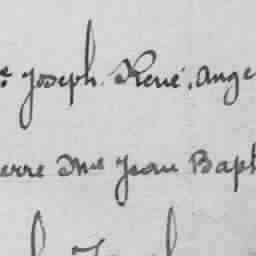 Joseph. René. Ange
erre Mel Jean Bapt